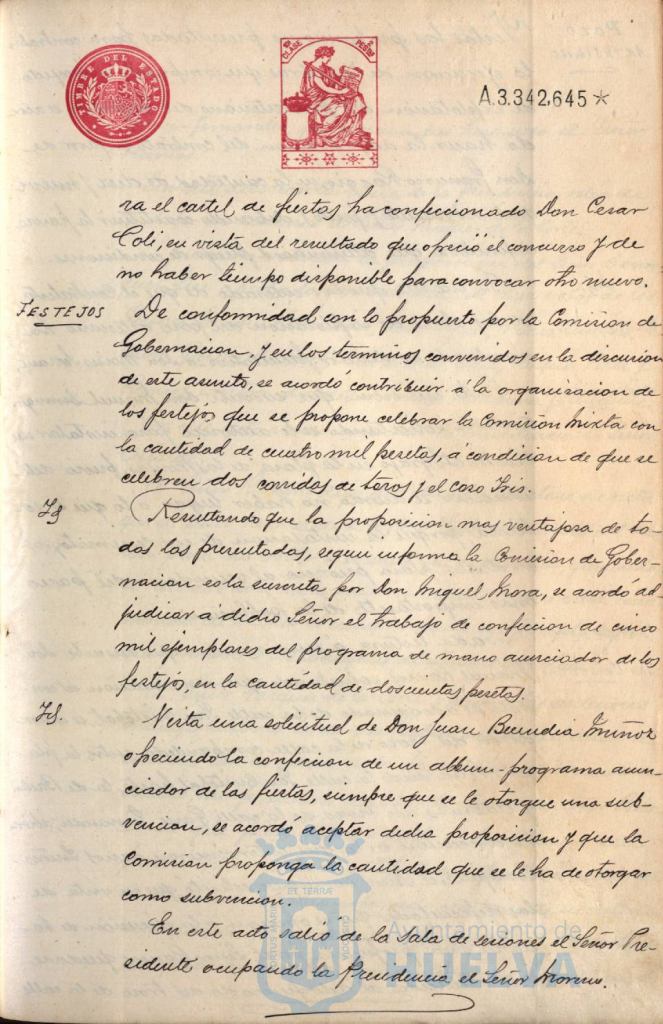 TIMBRE DEL ESTADO
CLASE
PESETAS
A.3.342,645*
ra el cartel de fiestas ha confeccionado Don Cesar
Coli, en vista del resultado que ofreció el concurso y de
no haber tiempo disponible para convocar otro nuevo.
FESTEJOS
De conformidad con lo propuesto por la Comision de
Gobernacion, y en los terminos convenidos en la discusion
de este asunto, se acordó contribuir á la organizacion de
los festejos que se propone celebrar la Comisión Mixta con
la cantidad de cuatro mil pesetas, á condicion de que se
celebren dos corridas de toros y el coso Iris.
Id
Resultando que la proposicion mas ventajosa de to-
das las presentadas, segun informa la Comision de Gober-
nacion es la suscrita por Don Miguel Mora, se acordó ad-
judicar á dicho Señor el trabajo de confeccion de cinco
mil ejemplares del programa de mano anunciador de los
festejos, en la cantidad de doscientas pesetas.
Id.
Vista una solicitud de Don Juan Buendia Muñoz
ofreciendo la confeccion de un album-programa anun-
ciador de las fiestas, siempre que se le otorgue una sub-
vencion, se acordó aceptar dicha proposicion y que la
Comision proponga la cantidad que se le ha de otorgar
como subvencion.
En este acto salió de la sala de sesiones el Señor Pre-
sidente ocupando la Presidencia el Señor Moreno.
Ayuntamiento de
HUELVA